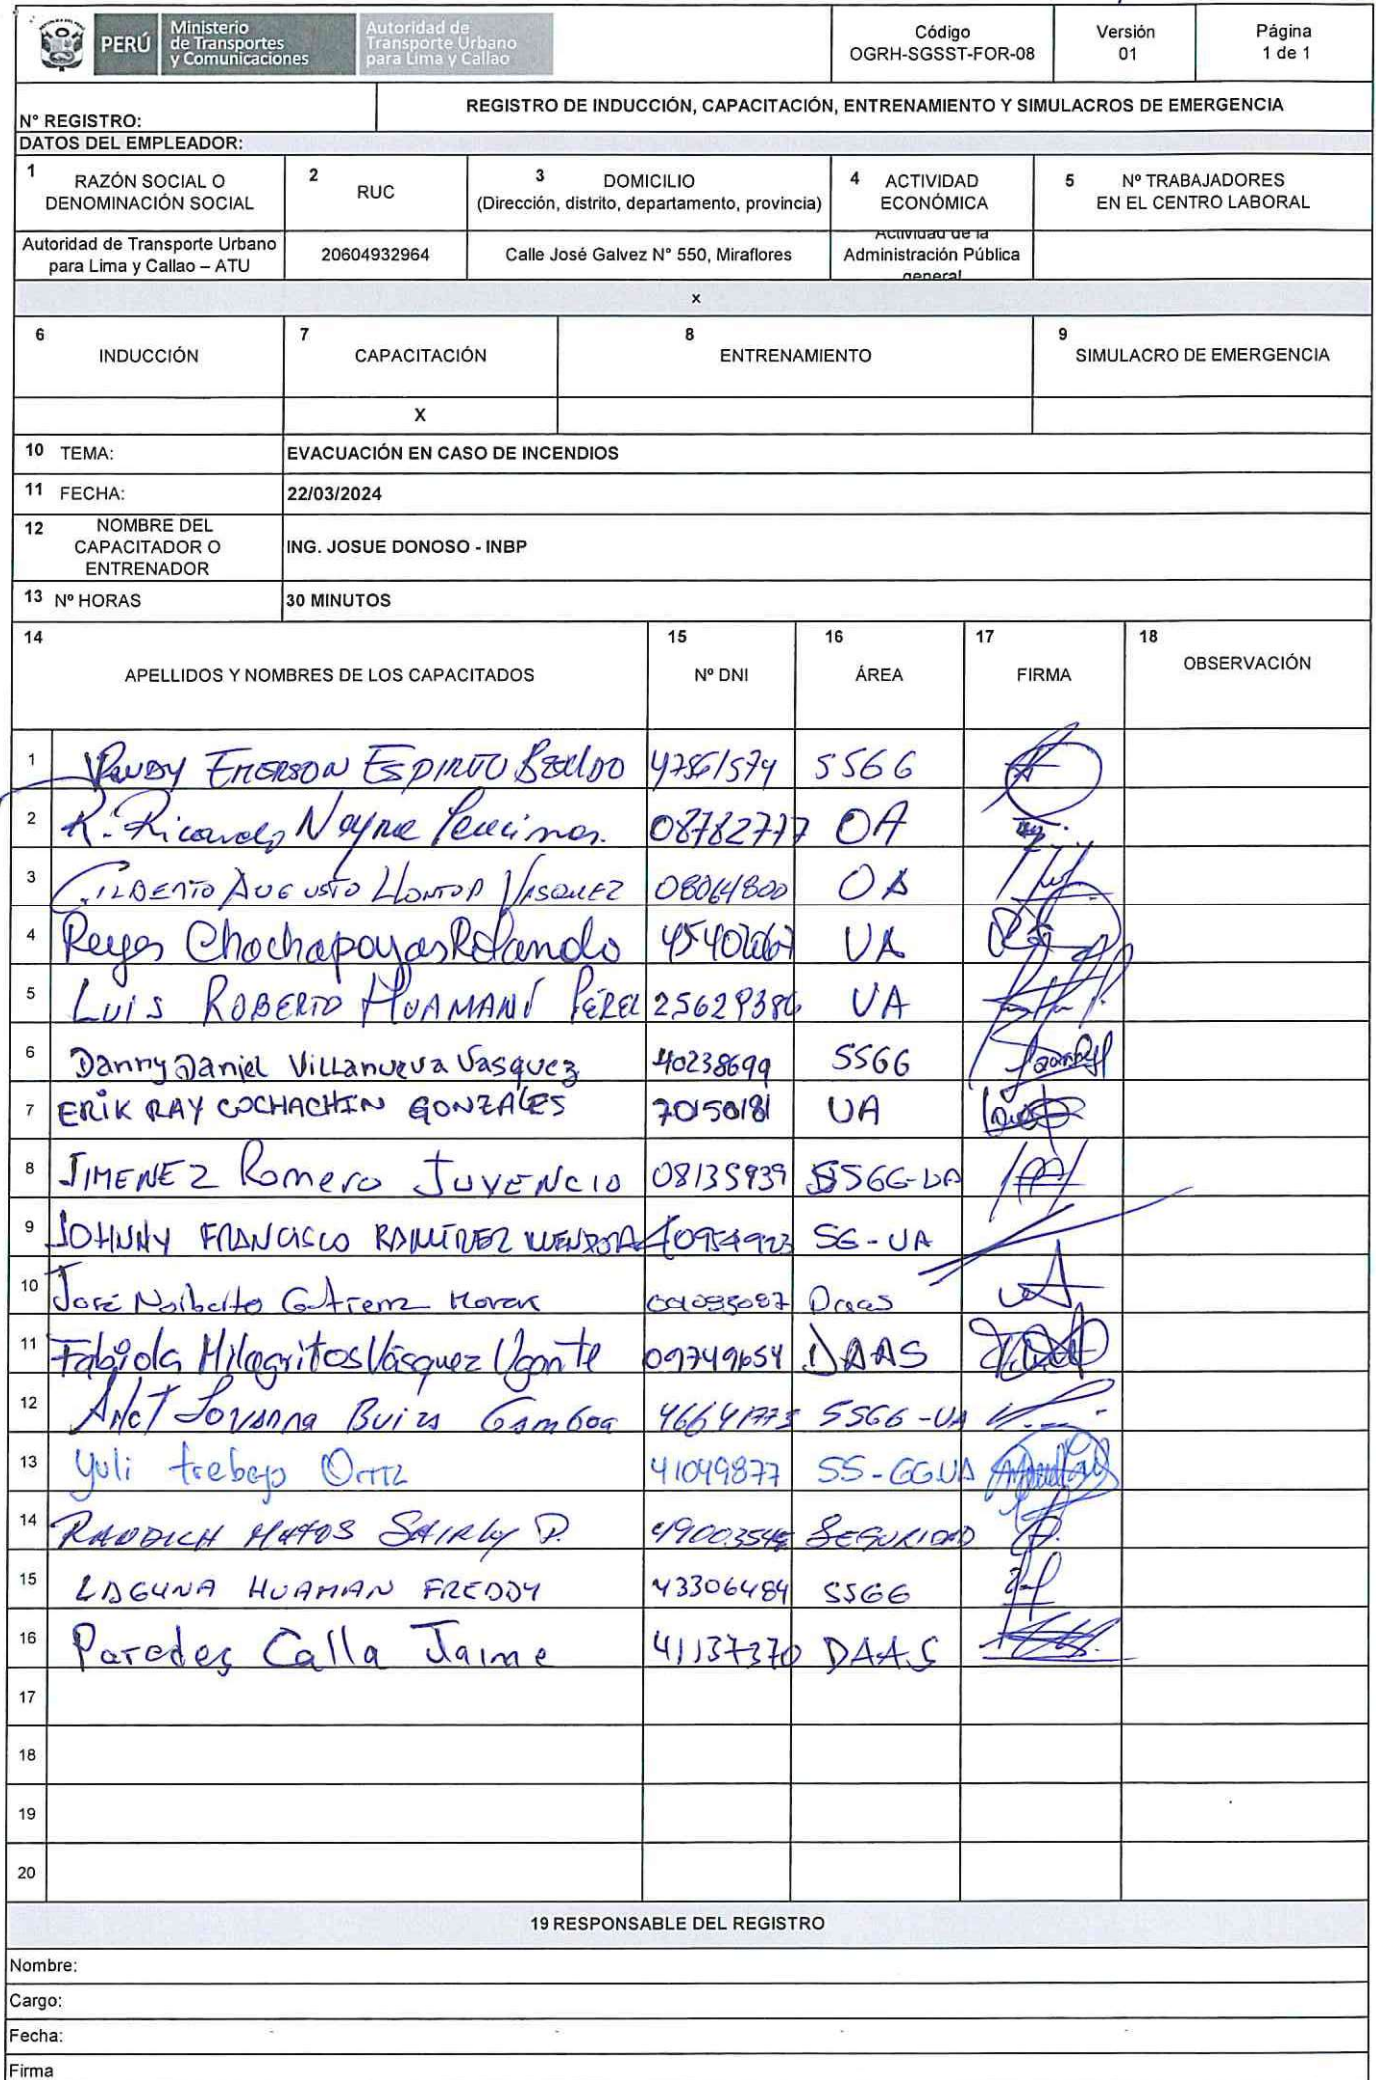 PERÚ
Ministerio
de Transportes
y Comunicaciones
Autoridad de
Transporte Urbano
para Lima y Callao
Código
OGRH-SGSST-FOR-08
Versión
01
Página
1 de 1
N° REGISTRO:
REGISTRO DE INDUCCIÓN, CAPACITACIÓN, ENTRENAMIENTO Y SIMULACROS DE EMERGENCIA
DATOS DEL EMPLEADOR:
1 RAZÓN SOCIAL O
DENOMINACIÓN SOCIAL
2 RUC
3 DOMICILIO
(Dirección, distrito, departamento, provincia)
4 ACTIVIDAD
ECONÓMICA
5 Nº TRABAJADORES
EN EL CENTRO LABORAL
Autoridad de Transporte Urbano
para Lima y Callao – ATU
20604932964
Calle José Galvez N° 550, Miraflores
Actividad de la
Administración Pública
general
x
6 INDUCCIÓN
7 CAPACITACIÓN
8 ENTRENAMIENTO
9 SIMULACRO DE EMERGENCIA
X
10 TEMA: EVACUACIÓN EN CASO DE INCENDIOS
11 FECHA: 22/03/2024
12 NOMBRE DEL
CAPACITADOR O
ENTRENADOR
ING. JOSUE DONOSO - INBP
13 Nº HORAS 30 MINUTOS
14 APELLIDOS Y NOMBRES DE LOS CAPACITADOS
15 Nº DNI
16 ÁREA
17 FIRMA
18 OBSERVACIÓN
1 EMERSON ESPIRITU 47561574 SSGG
2 R. Ricardo Neyra 08782777 OA
3 GILBERTO AUGUSTO LLONTOP VASQUEZ 08064800 OA
4 Reyes Chachapoyas Rolando UA
5 LUIS ROBERTO HUAMANÍ PÉREZ 25629386 UA
6 Danny Daniel Villanueva Vasquez 40238699 SSGG
7 ERIK RAY COCHACHIN GONZALES 70150181 UA
8 JIMENEZ Romero JUVENCIO 08135939 SSGG-UA
9 JOHNNY FRANCISCO RAMÍREZ MENDOZA 40954923 SG-UA
10 José Norberto Daas
11 Fabiola Milagritos Vásquez Ugarte 09749654 DAAS
12 Gamboa SSGG-UA
13 Yuli trebejo Ortiz 41049877 SS-GGUA
14 MATOS SHIRLY P. SEGURIDAD
15 LAGUNA HUAMAN FREDDY 43306484 SSGG
16 Paredes Calla Jaime 41137370 DAAS
17
18
19
20
19 RESPONSABLE DEL REGISTRO
Nombre:
Cargo:
Fecha:
Firma